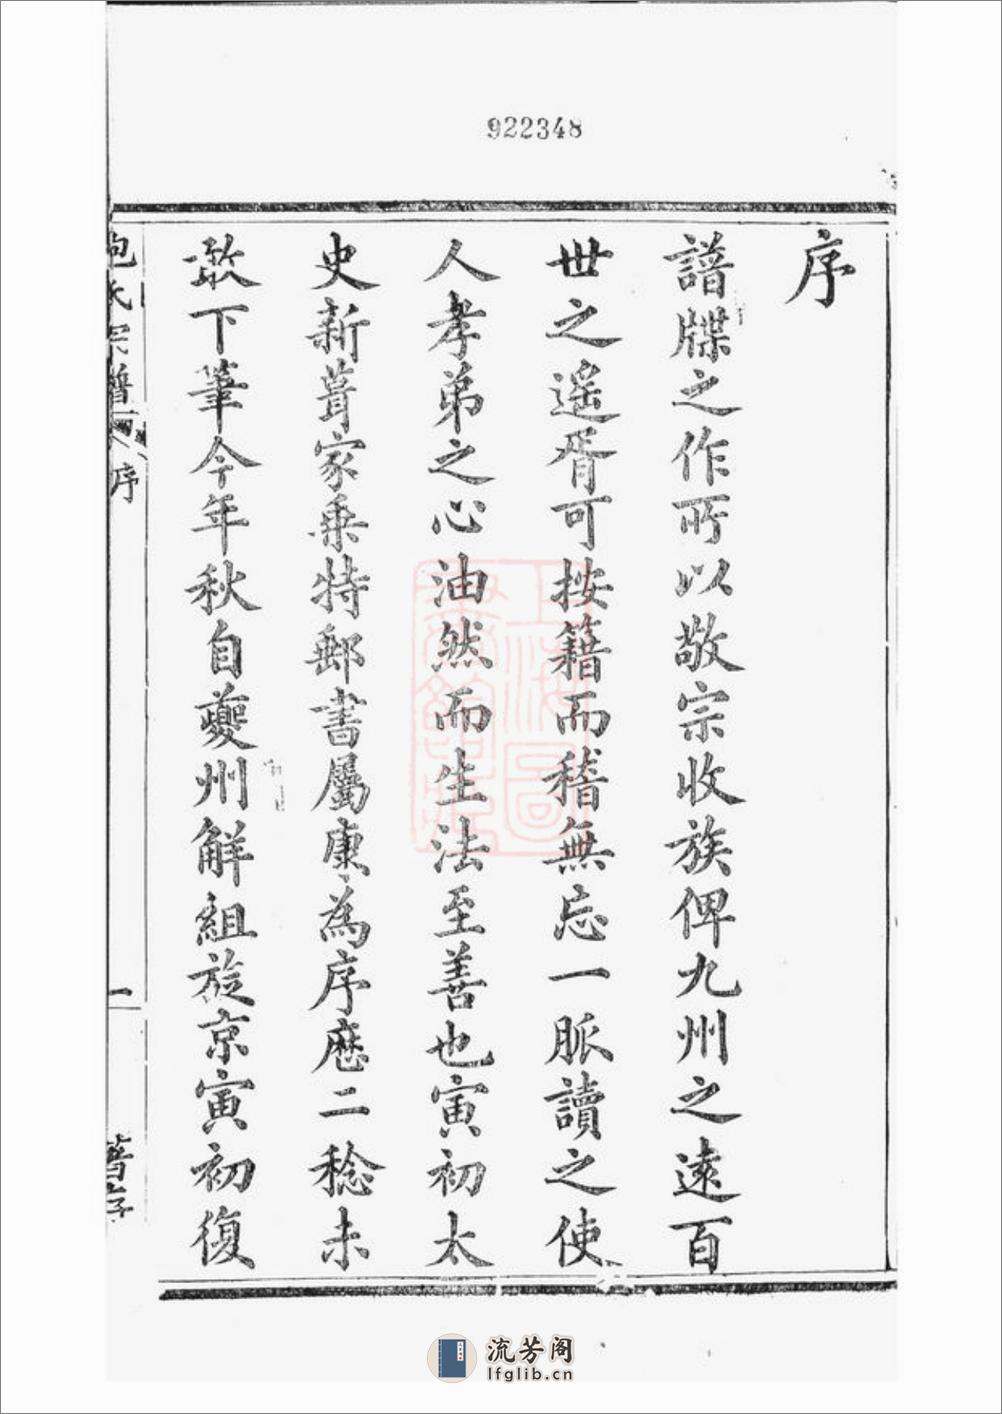 922348
序
譜牒之作所以敬宗收族俾九州之遠百
世之遙胥可按籍而稽無忘一脈讀之使
人孝弟之心油然而生法至善也寅初太
史新葺家乘特郵書屬康為序歷二稔未
敢下筆今年秋自夔州解組旋京寅初復
鮑氏宗譜
序
一
上海圖書館藏
流芳阁
lfglib.cn